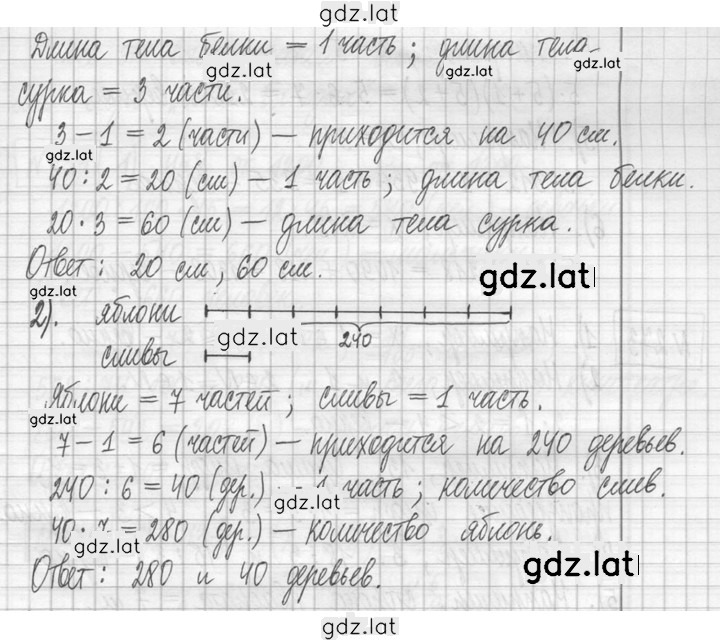 gdz.lat
Длина тела белки = 1 часть; длина тела
gdz.lat gdz.lat
сурка = 3 части.
3 - 1 = 2 (части) — приходится на 40 см.
gdz.lat
40 : 2 = 20 (см) — 1 часть; длина тела белки.
20 · 3 = 60 (см) — длина тела сурка.
Ответ: 20 см, 60 см.
gdz.lat
gdz.lat
2). яблони
gdz.lat 240
сливы
Яблони = 7 частей; сливы = 1 часть.
gdz.lat
7 - 1 = 6 (частей) — приходится на 240 деревьев.
240 : 6 = 40 (дер.) — 1 часть; количество слив.
gdz.lat
40 · 7 = 280 (дер.) — количество яблонь.
gdz.lat
Ответ: 280 и 40 деревьев.
gdz.lat
gdz.lat